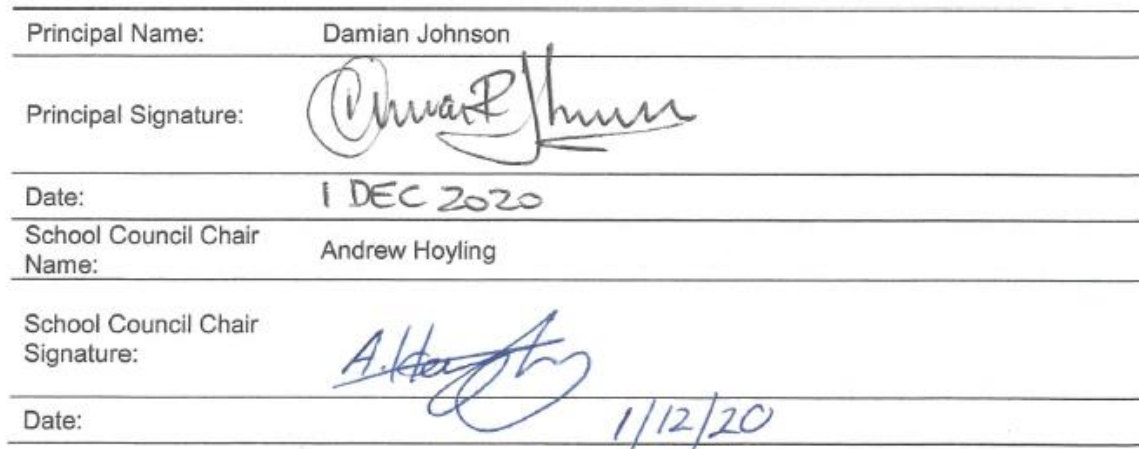 Principal Name: Damian Johnson
Principal Signature:
Date: 1 DEC 2020
School Council Chair
Name: Andrew Hoyling
School Council Chair
Signature:
Date: 1/12/20